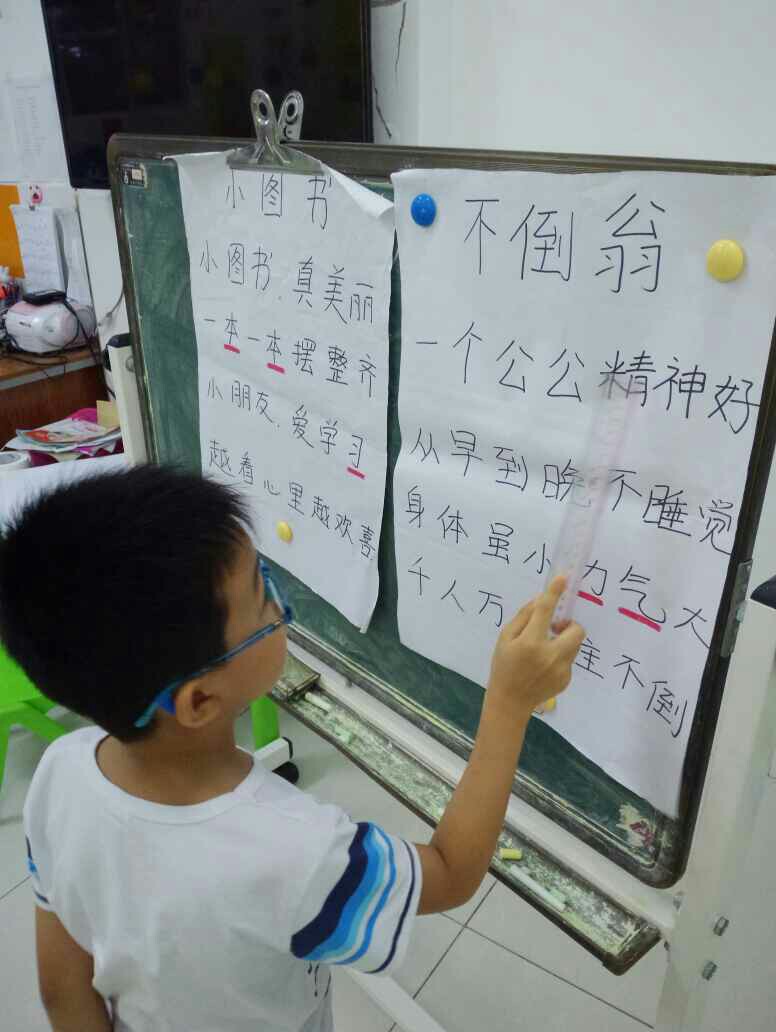 小图书
小图书.真美丽
一本一本摆整齐
小朋友.爱学习
越看心里越欢喜
不倒翁
一个公公精神好
从早到晚不睡觉
身体虽小力气大
千人万 不倒